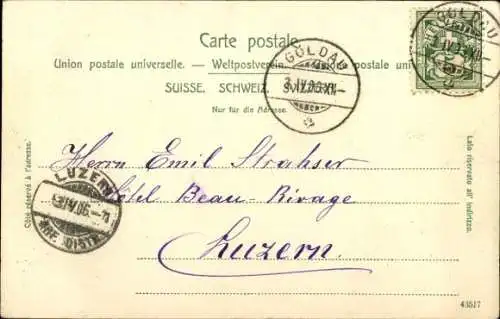 Carte postale.
Union postale universelle. — Weltpostverein. — Unione postale uni
SUISSE. SCHWEIZ. SVIZZERA.
Nur für die Adresse.
GOLDAU
3.IV.06.XII—
GOLDAU
3.IV.06.XII—
Côté réservé à l'adresse.
Lato riservato all' indirizzo.
Herrn Emil Strahser
Hôtel Beau-Rivage
Luzern.
LUZERN
3.IV.06.—
BRF. DISTR.
43517